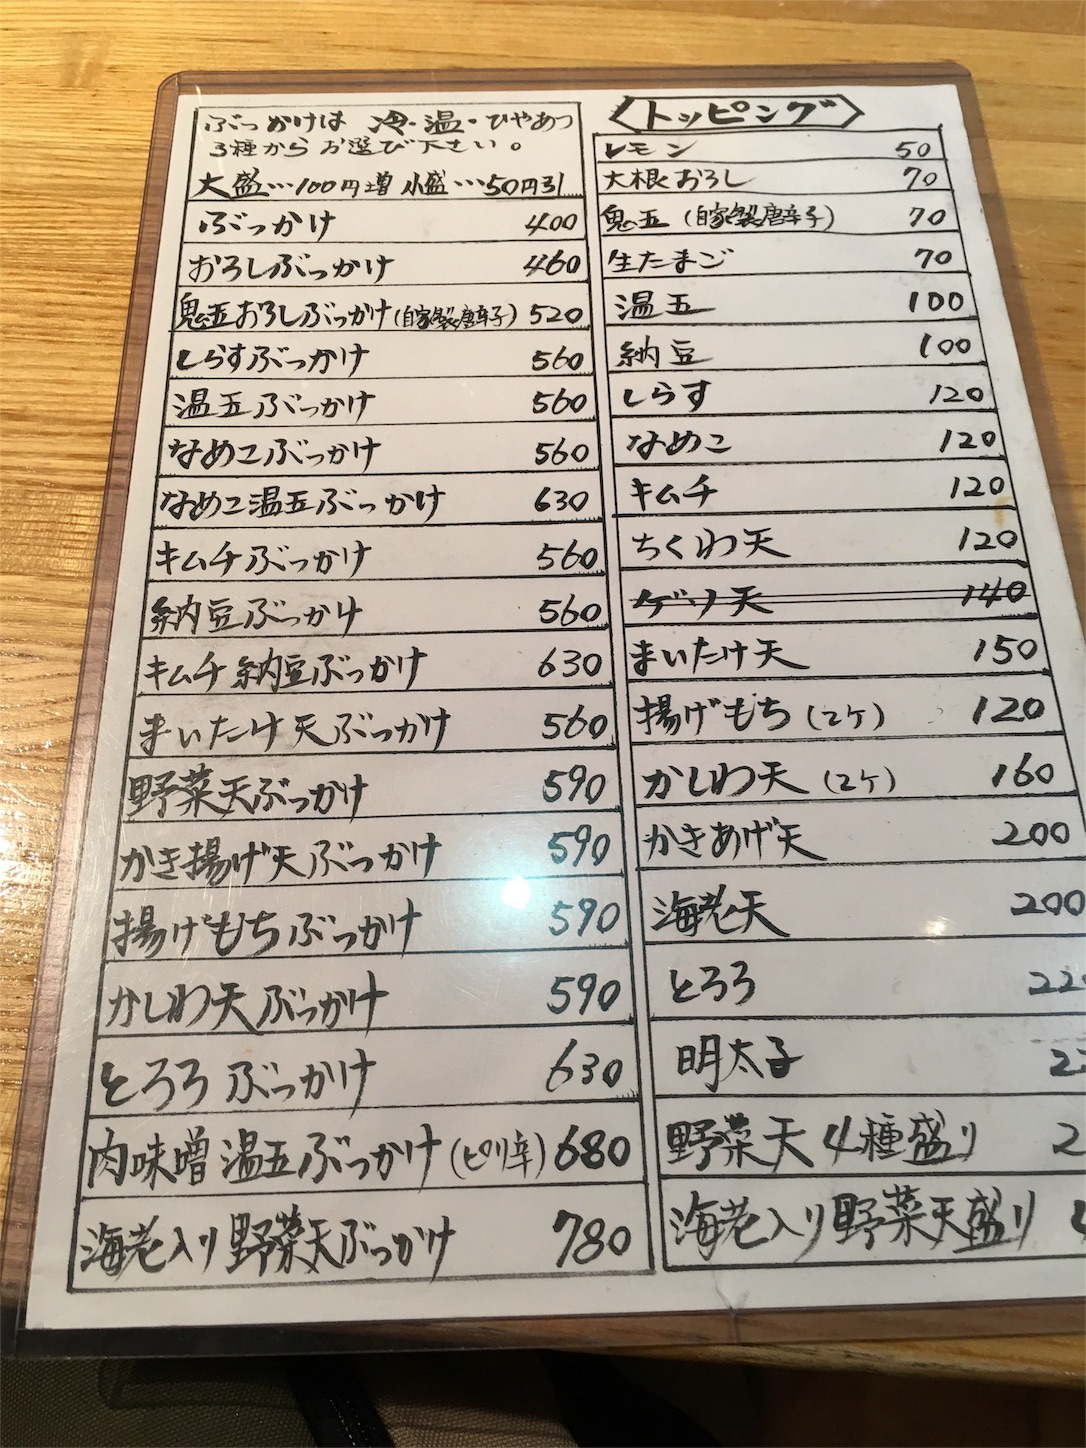 ぶっかけは 冷・温・ひやあつ
3種からお選び下さい。
大盛…100円増 小盛…50円引
ぶっかけ 400
おろしぶっかけ 460
鬼玉おろしぶっかけ(自家製唐辛子) 520
しらすぶっかけ 560
温玉ぶっかけ 560
なめこぶっかけ 560
なめこ温玉ぶっかけ 630
キムチぶっかけ 560
納豆ぶっかけ 560
キムチ納豆ぶっかけ 630
まいたけ天ぶっかけ 560
野菜天ぶっかけ 590
かき揚げ天ぶっかけ 590
揚げもちぶっかけ 590
かしわ天ぶっかけ 590
とろろぶっかけ 630
肉味噌温玉ぶっかけ(ピリ辛) 680
海老入り野菜天ぶっかけ 780
トッピング
レモン 50
大根おろし 70
鬼玉(自家製唐辛子) 70
生たまご 70
温玉 100
納豆 100
しらす 120
なめこ 120
キムチ 120
ちくわ天 120
ゲソ天 140
まいたけ天 150
揚げもち(2ケ) 120
かしわ天(2ケ) 160
かきあげ天 200
海老天 200
とろろ 22
明太子 2
野菜天4種盛り 2
海老入り野菜天盛り